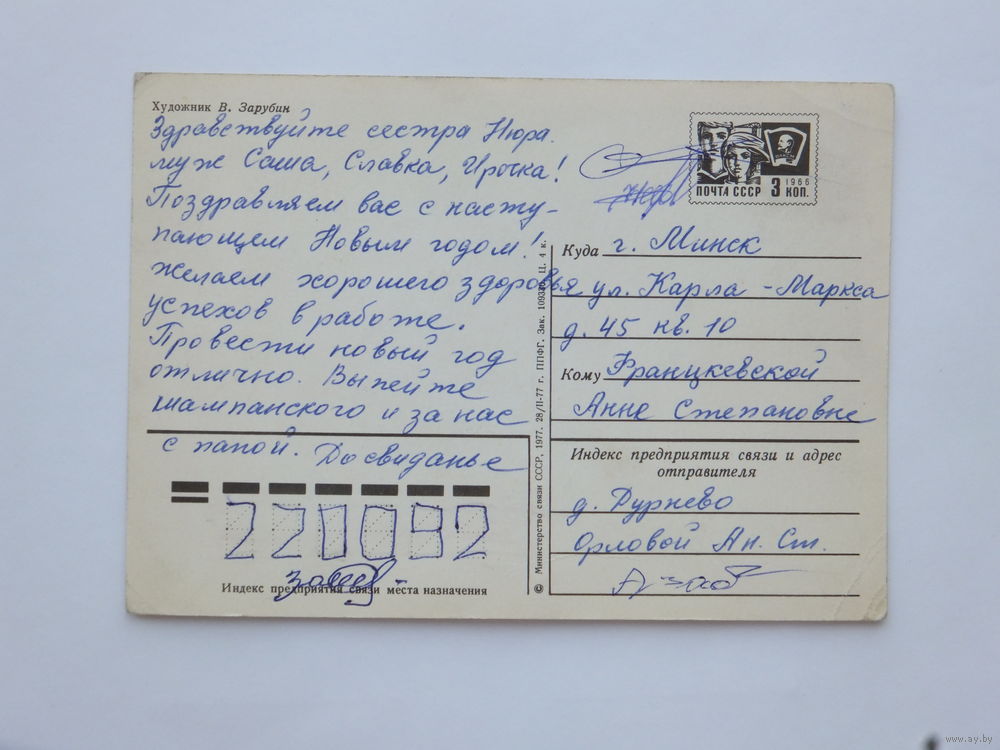 Художник В. Зарубин
Здравствуйте сестра Нюра.
муж Саша, Славка, Ирочка!
Поздравляем вас с насту-
пающем Новым годом!
Желаем хорошего здоровья
успехов в работе.
Провести новый год
отлично. Выпейте
шампанского и за нас
с папой. До свиданье
220092
Индекс предприятия связи места назначения
© Министерство связи СССР, 1977. 28/II-77 г. ППФГ. Зак. 109330. Ц. 4 к.
ПОЧТА СССР 3 КОП. 1966
Куда г. Минск
ул. Карла-Маркса
д. 45 кв. 10
Кому Францкевской
Анне Степановне
Индекс предприятия связи и адрес
отправителя
д. Дурнево
Орловой Ан. Ст.
www.ay.by